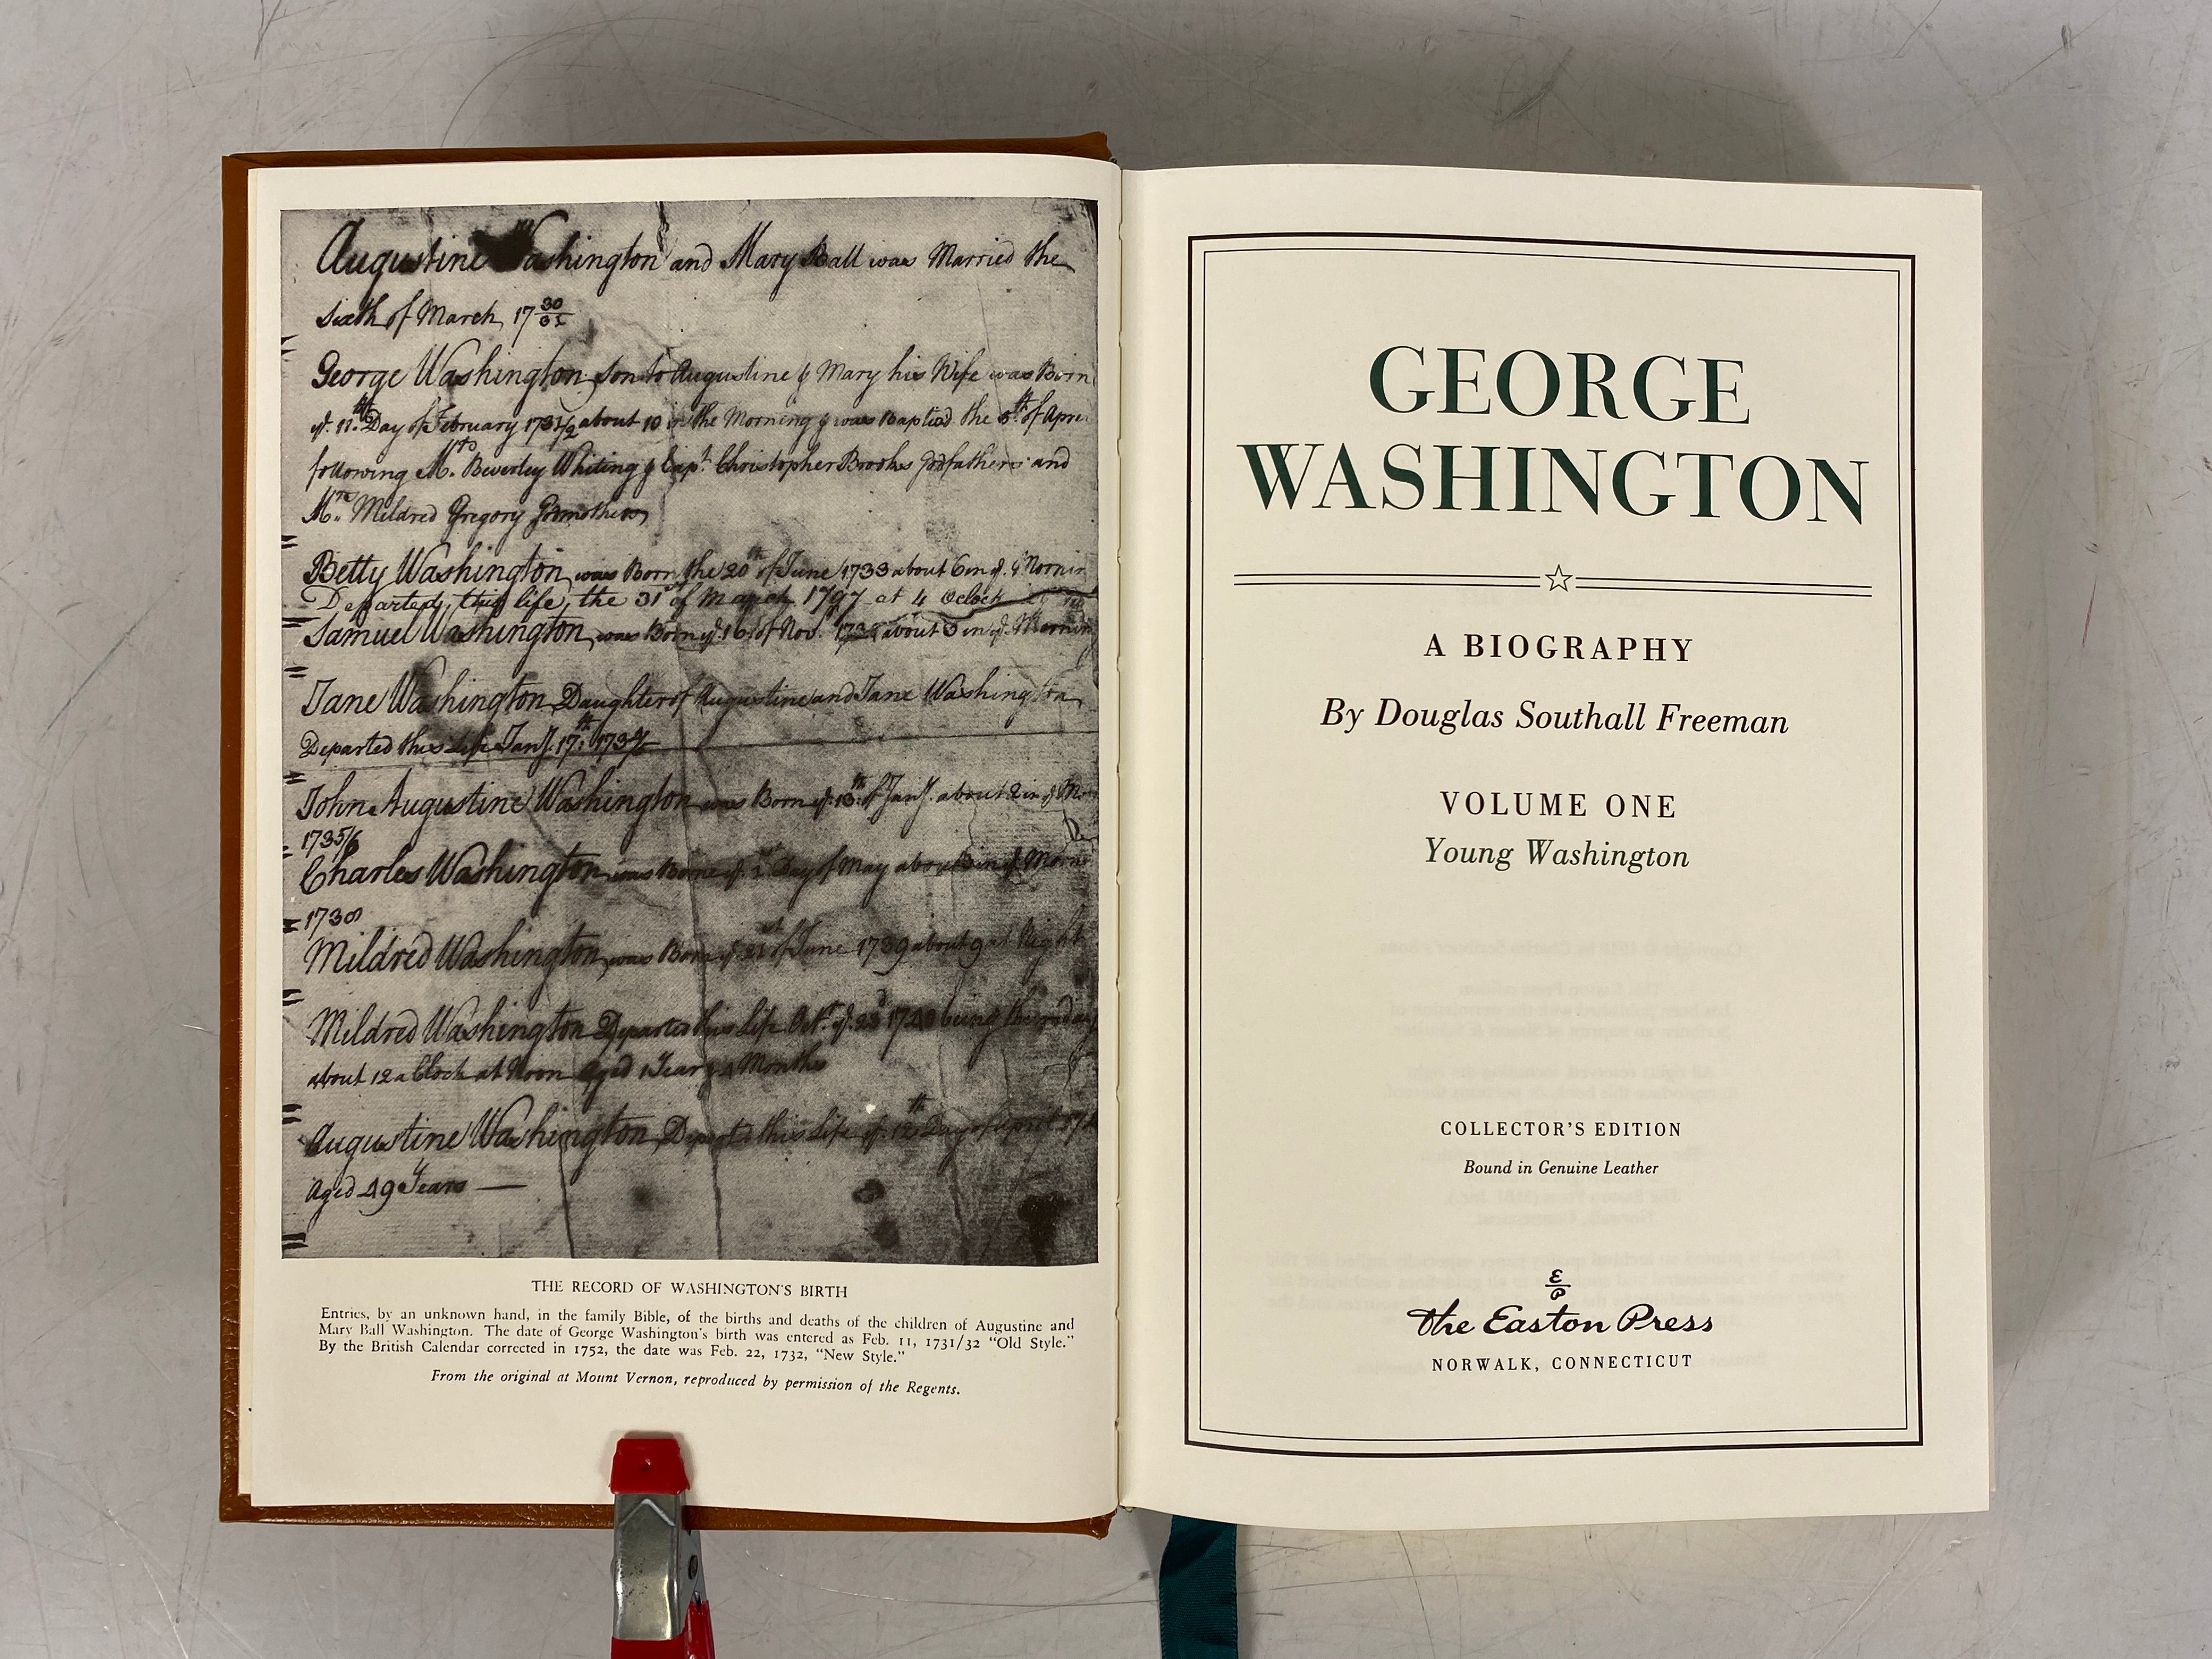 Augustine Washington and Mary Ball was Married the
Sixth of March 17 30/31
George Washington Son to Augustine & Mary his Wife was Born
ye 11th Day of February 1731/2 about 10 in the Morning & was Baptied the 5th of Apri
following Mr Beverley Whiting & Capt Christopher Brooks Godfathers and
Mrs Mildred Gregory Godmother
Betty Washington was Born the 20th of June 1733 about 6 in ye Mornin
Departed this life, the 31st of March 1797 at 4 Oclock
Samuel Washington was Born ye 16 of Nov. about 3 in ye Mornin
Jane Washington Daughter of Augustine and Jane Washington
Departed this Life Jany. 17th 173
John Augustine Washington was Born ye 13th of Jany. about 2 in ye
1735/6
Charles Washington was Borne ye Day of May about 3 in ye Morn
1738
Mildred Washington was Born ye 21st of June 1739 about 9 at Night
Mildred Washington Departed this Life Oct. ye 23d 1740 being
about 12 a Clock at Noon Aged 1 Year & 4 Months
Augustine Washington Departed this Life ye 12th Day of April
Aged 49 Years
THE RECORD OF WASHINGTON'S BIRTH
Entries, by an unknown hand, in the family Bible, of the births and deaths of the children of Augustine and
Mary Ball Washington. The date of George Washington's birth was entered as Feb. 11, 1731/32 "Old Style."
By the British Calendar corrected in 1752, the date was Feb. 22, 1732, "New Style."
From the original at Mount Vernon, reproduced by permission of the Regents.
GEORGE
WASHINGTON
A BIOGRAPHY
By Douglas Southall Freeman
VOLUME ONE
Young Washington
COLLECTOR'S EDITION
Bound in Genuine Leather
E/P
The Easton Press
NORWALK, CONNECTICUT